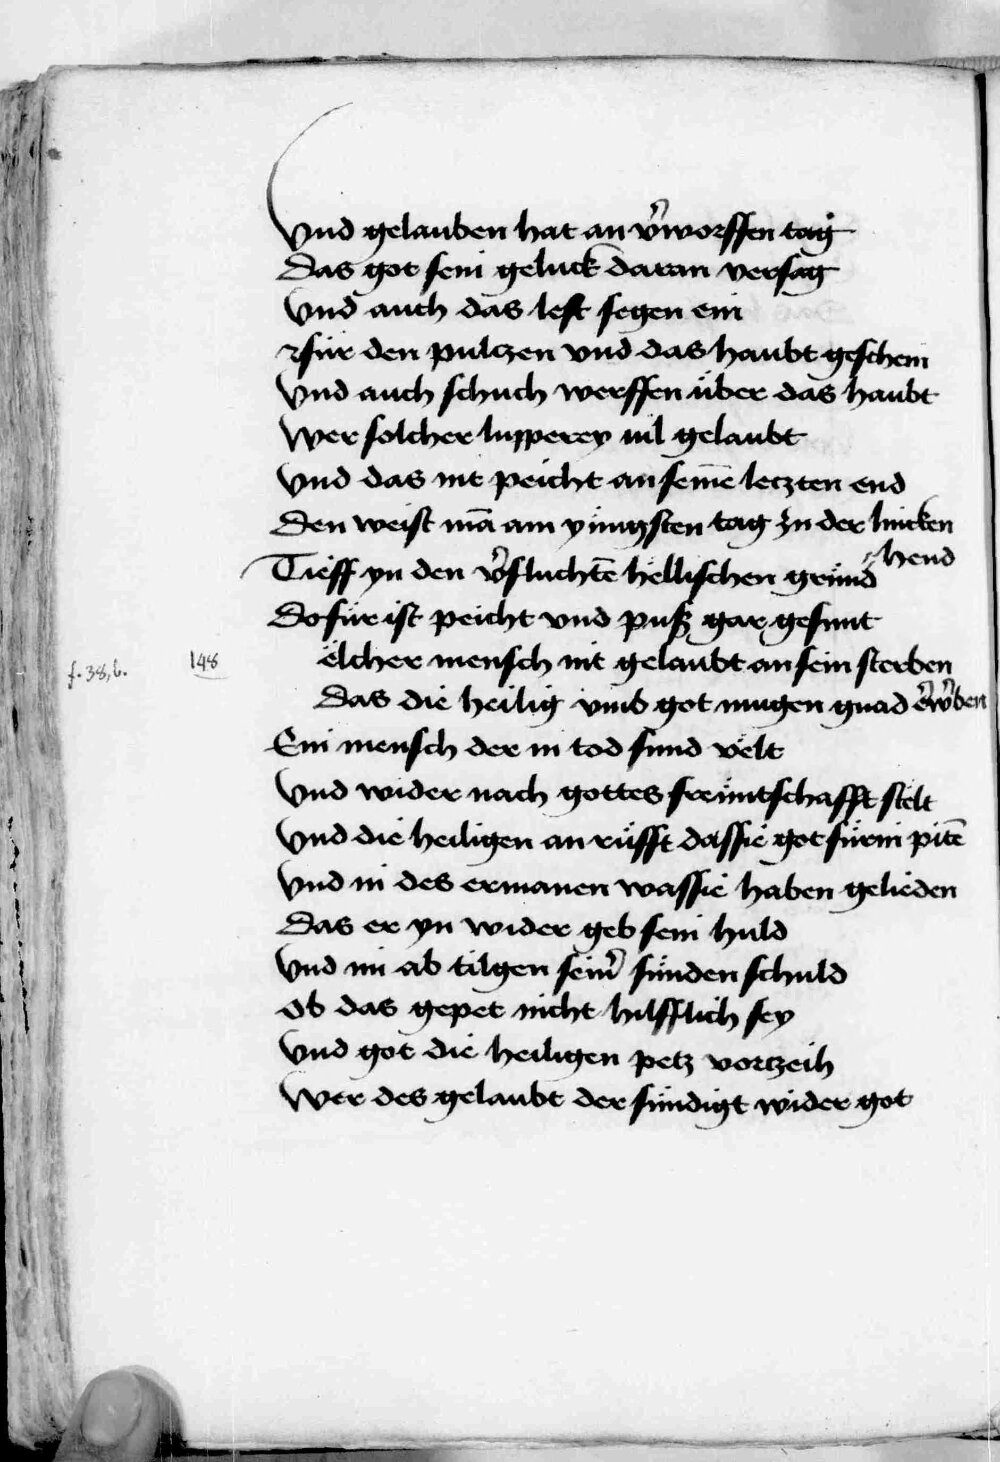 Vnd gelauben hat an v̾worffen tag
Das got sein geluck daran versag
Vnd auch das lest segen ein
Fur den pulczen vnd das haubt geschein
Vnd auch schuch werffen über das haubt
Wer solcher lupperey vil gelaubt
Vnd das nit peicht an seinē leczten end
Den weist mā am yüngsten tag zu der lincken
hend
Tieff yn den v̾fluchtē hellischen grund
Dofür ist peicht vnd puß gar gesunt
f. 38,b. 148 elcher mensch nit gelaubt an sein sterben
Das die heilig vmb got mugen gnad erw̾ben
Ein mensch der in tod sund velt
Vnd wider nach gottes freüntschafft stelt
Vnd die heiligen an rüfft das sie got für in pitē
Vnd in des ermanen was sie haben gelieden
Das er yn wider geb sein huld
Vnd im ab tilgen sein̾ sünden schuld
Ob das gepet nicht hilfflich sey
Vnd got die heiligen petz vorczeih
Wer des gelaubt der sündigt wider got